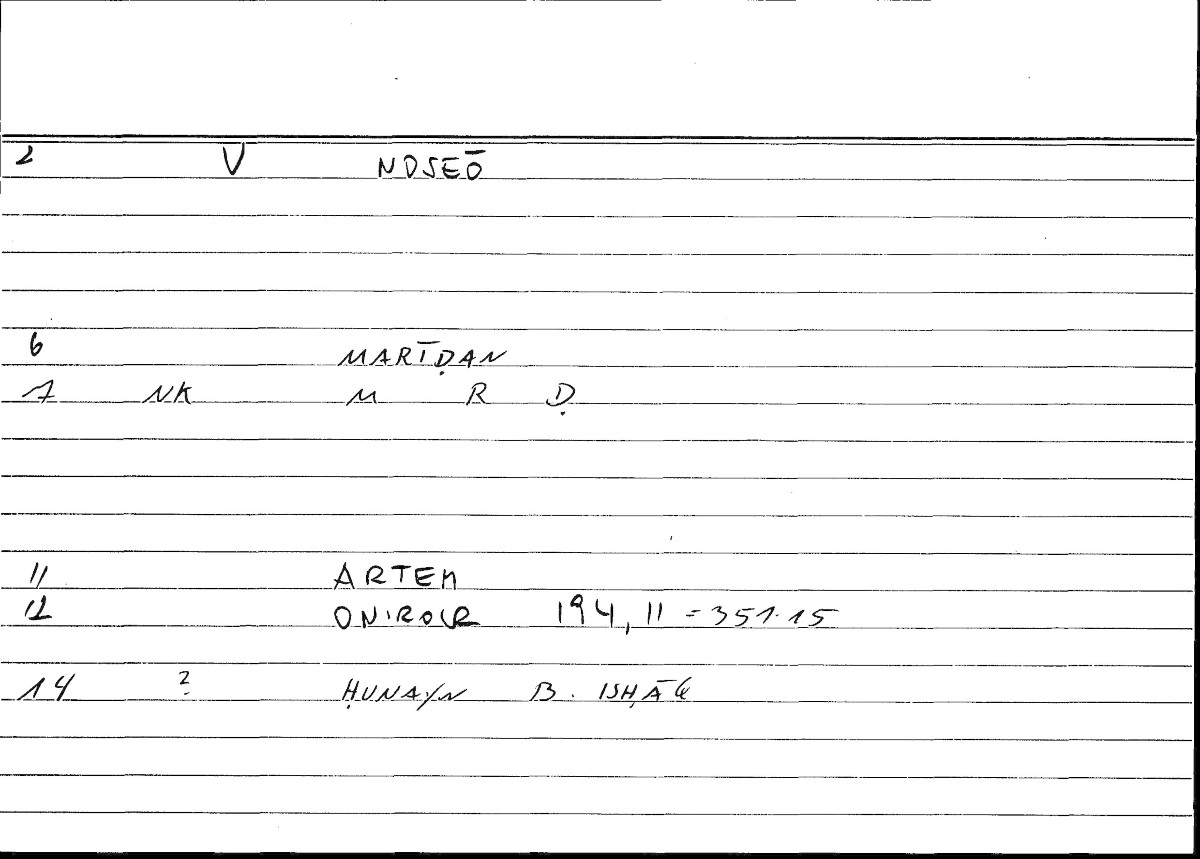 2 V NOSEŌ
6 MARĪḌAN
7 NK M R Ḍ
11 ARTEM
12 ONIROCR 194, 11 = 351.15
14 ? ḤUNAYN B. ISḤĀQ